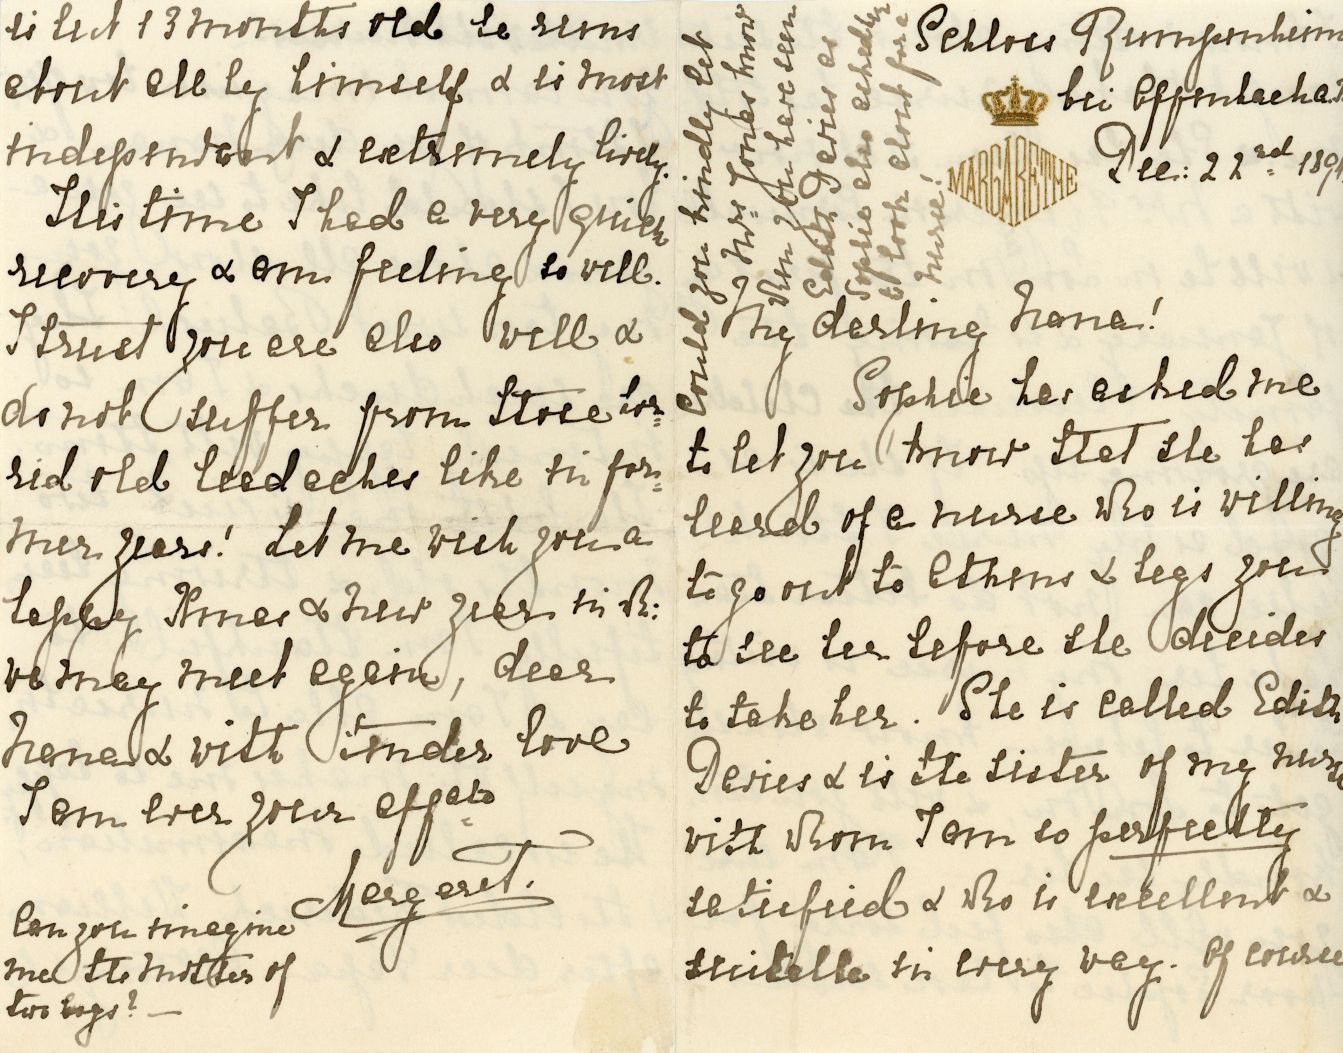 Schloss Rumpenheim
bei Offenbach a.
MARGARETHE
Dec: 22nd 1894
My darling Nana!
Sophie has asked me
to let you know that she has
heard of a nurse who is willing
to go out to Athens & begs you
to see her before she decides
to take her. She is called Edith
Davies & is the sister of my nurse
with whom I am so perfectly
satisfied & who is excellent &
suitable in every way. Of course
Could you kindly let
Mrs Jones know
when you have seen
Edith Davies as
Sophie also asked her
to look about for a
nurse!
is but 13 months old he runs
about all by himself & is most
independent & extremely lively.
This time I had a very quick
recovery & am feeling so well.
I trust you are also well &
do not suffer from those hor=
rid old headaches like in for=
mer years! Let me wish you a
happy Xmas & New Year in wh:
we may meet again, dear
Nana & with tender love
I am ever your affate
Margaret.
Can you imagine
me the mother of
two boys? —